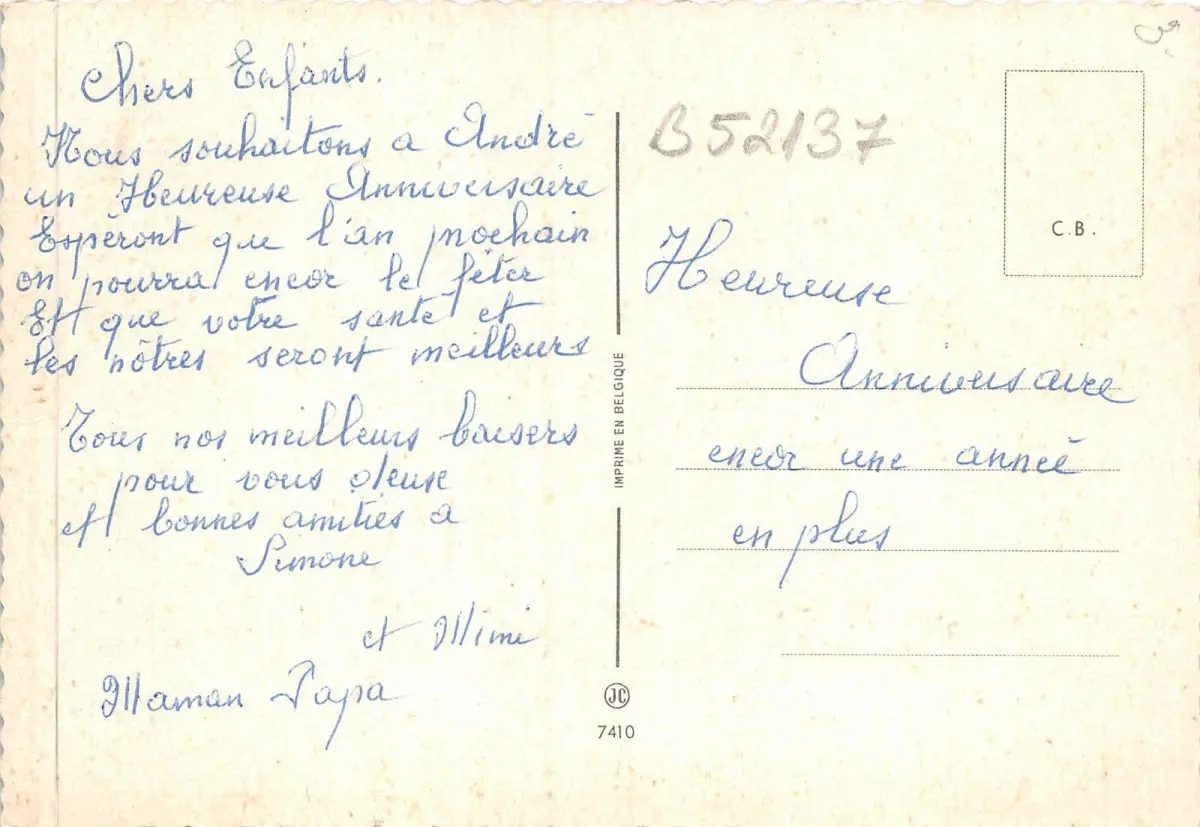 Chers Enfants.
Nous souhaitons a André
un Heureuse Anniversaire
Espèront que l'an prochain
on pourra encor le fêter
Et que votre santé et
les nôtres seront meilleurs
Tous nos meilleurs baisers
pour vous deuse
et bonnes amitiés a
Simone
et Mimi
Maman Papa
IMPRIME EN BELGIQUE
JC
7410
B52137
C.B.
Heureuse
Anniversaire
encor une année
en plus